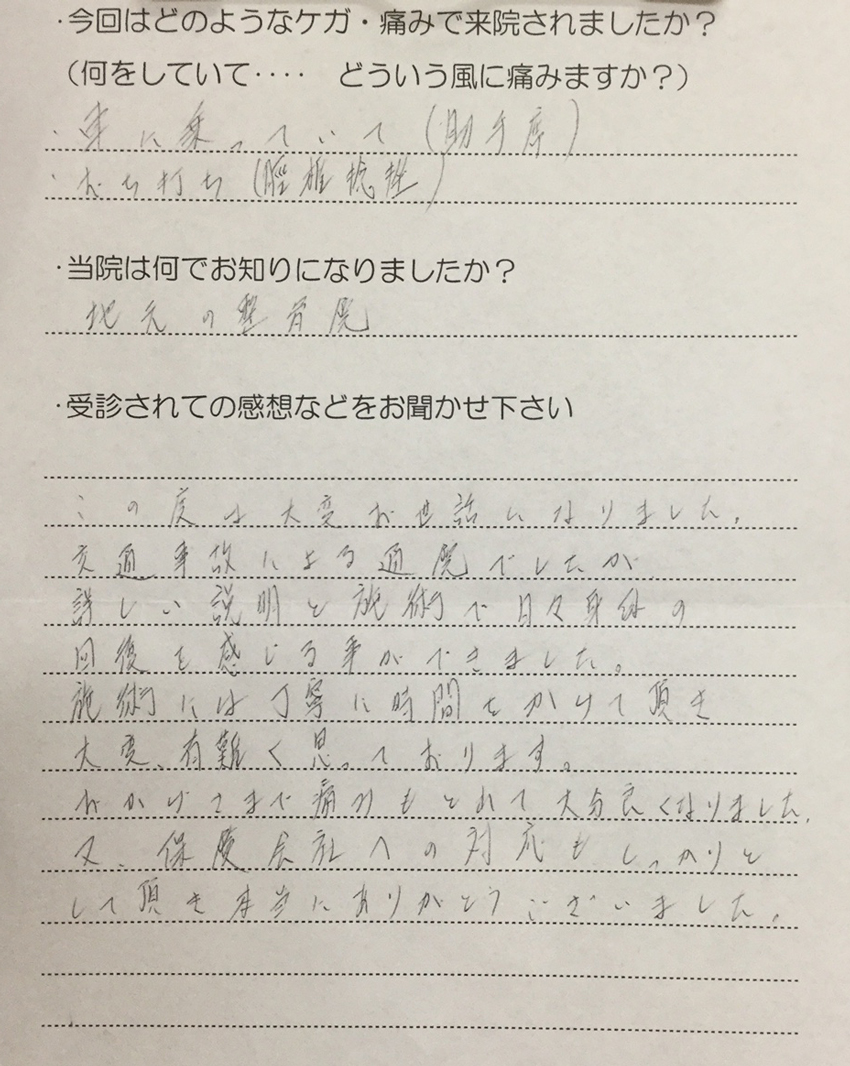 ・今回はどのようなケガ・痛みで来院されましたか？
（何をしていて‥‥　どういう風に痛みますか？）
・車に乗っていて(助手席)
・むち打ち(脛椎捻挫)
・当院は何でお知りになりましたか？
地元の整骨院
・受診されての感想などをお聞かせ下さい
この度は大変お世話になりました。
交通事故による通院でしたが、
詳しい説明と施術で日々身体の
回復を感じる事ができました。
施術には丁寧に時間をかけて頂き
大変、有難く思っております。
おかげさまで痛みもとれて大分良くなりました。
又、保険会社への対応もしっかりと
して頂き本当にありがとうございました。